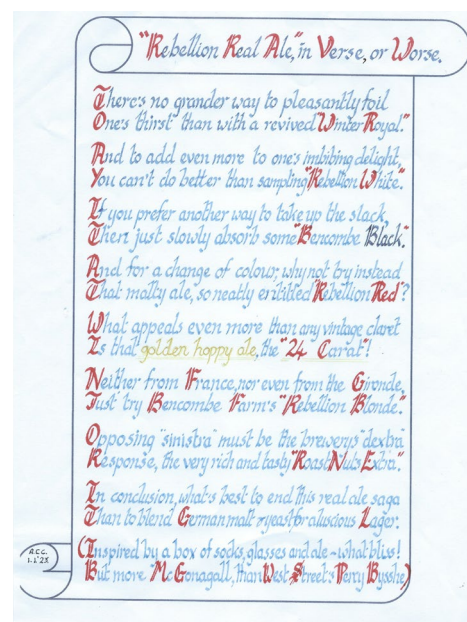 "Rebellion Real Ale," in Verse, or Worse.
There's no grander way to pleasantly foil
One's thirst than with a revived "Winter Royal."
And to add even more to one's imbibing delight,
You can't do better than sampling "Rebellion White."
If you prefer another way to take up the slack,
Then just slowly absorb some "Bencombe Black."
And for a change of colour, why not try instead
That malty ale, so neatly entitled "Rebellion Red"?
What appeals even more than any vintage claret
Is that golden hoppy ale, the "24 Carat"!
Neither from France, nor even from the Gironde,
Just try Bencombe Farm's "Rebellion Blonde."
Opposing "sinistra" must be the brewery's "dextra"
Response, the very rich and tasty "Roast Nuts Extra."
In conclusion, what's best to end this real ale saga
Than to blend German malt n yeast for a luscious Lager.
(Inspired by a box of socks, glasses and ale - what bliss!
But more McGonagall, than West Street's Percy Bysshe)
A.C.C.
1.1.'25